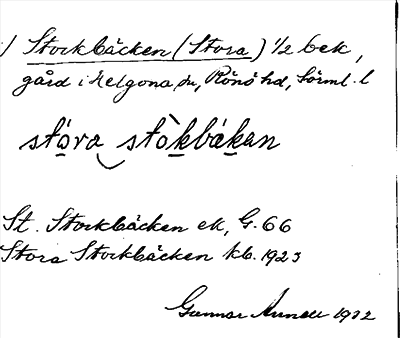 ) Stockbäcken (Stora) 1/2 bek,
gård i Helgona sn, Rönö hd, Sörml. l
stóra stòkbákan
St. Stockbäcken ek, G. 66
Stora Stockbäcken kb. 1923
Gunnar 1932